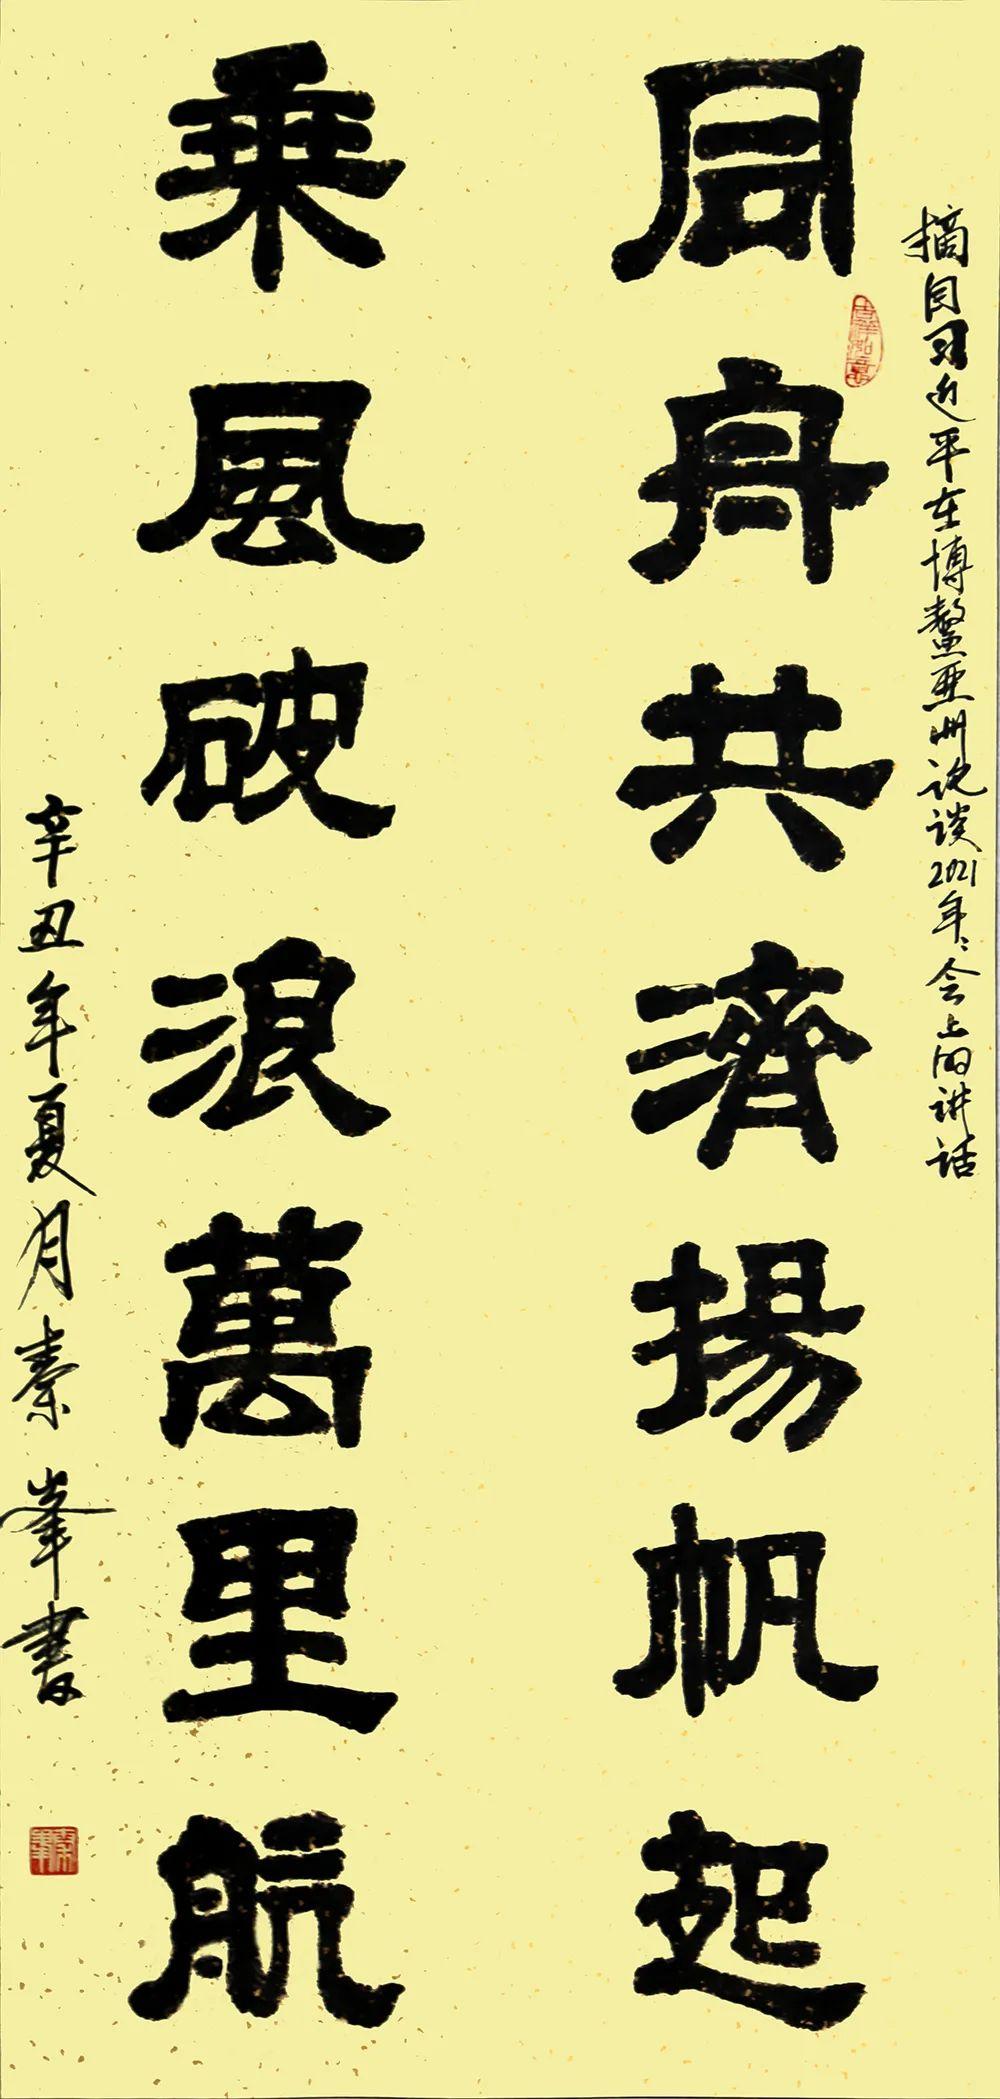 摘自习近平在博鳌亚洲论谈2021年年会上的讲话
同舟共濟揚帆起
乘風破浪萬里航
辛丑年夏月秦峯書